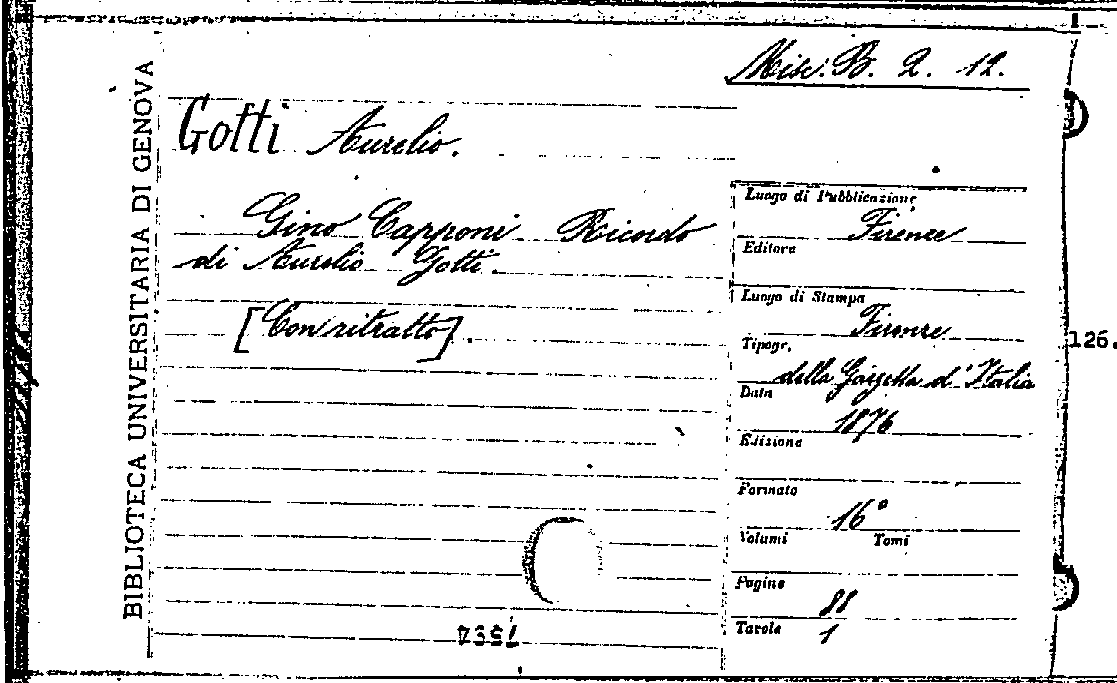 Misc. B. 2. 12.
BIBLIOTECA UNIVERSITARIA DI GENOVA
Gotti Aurelio.
Gino Capponi Ricordo
di Aurelio Gotti.
[Con ritratto].
Luogo di Pubblicazione
Firenze
Editore
Luogo di Stampa
Firenze
Tipogr.
della Gazzetta d'Italia
Data
1876
Edizione
Formato
16°
Volumi Tomi
Pagine
88
Tavole
1
126.